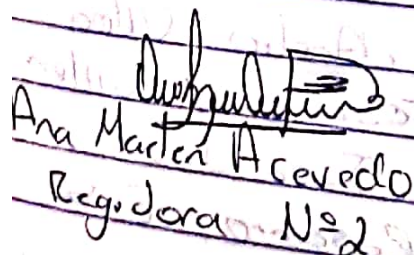 Ana Marlen Acevedo
Regidora Nº2